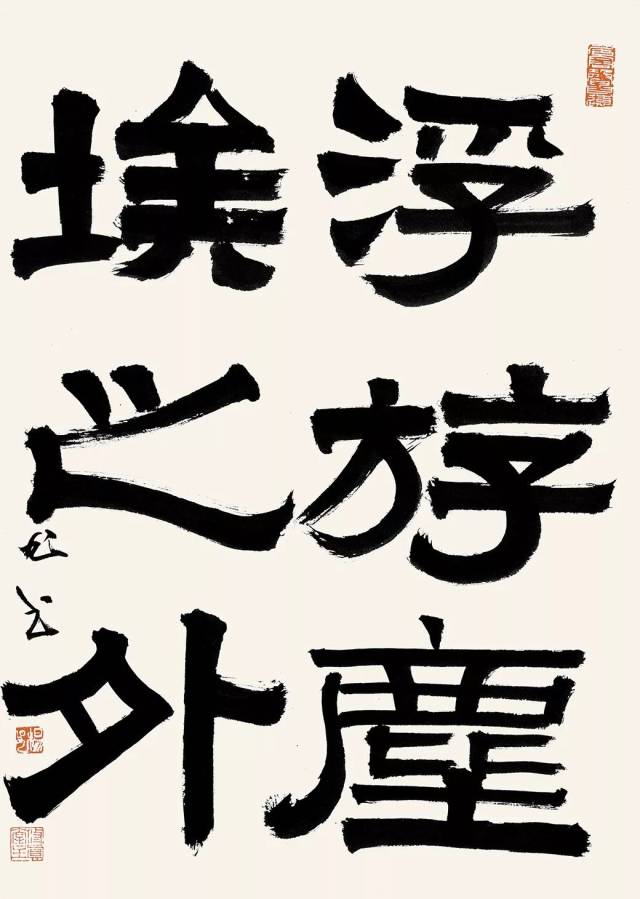 浮斿塵
埃之外